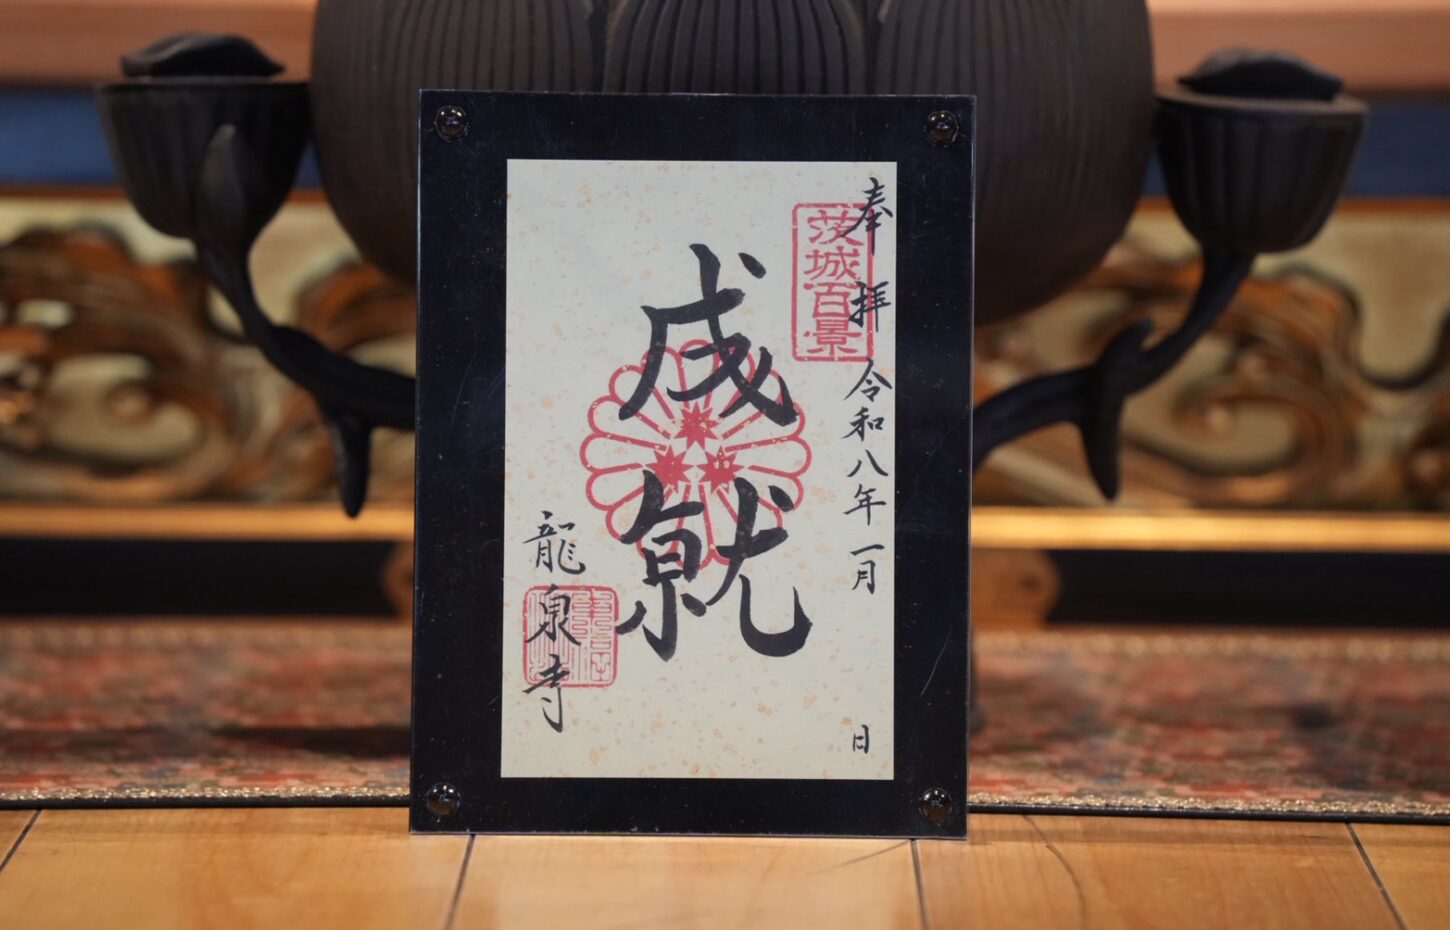 奉拝 令和八年一月 日
茨城百景
成就
龍泉寺